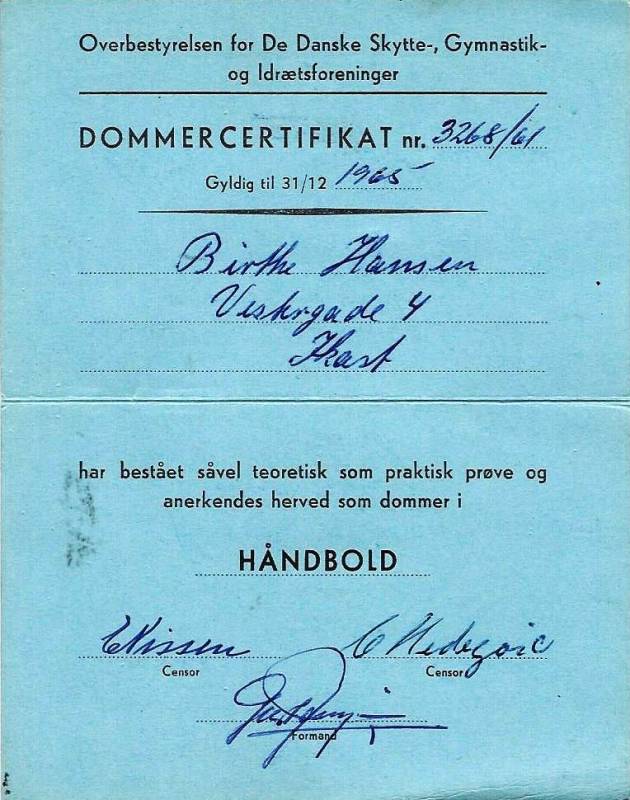 Overbestyrelsen for De Danske Skytte-, Gymnastik-
og Idrætsforeninger
DOMMERCERTIFIKAT nr. 3268/61
Gyldig til 31/12 1965
Birthe Hansen
Vestergade 4
Ikast
har bestået såvel teoretisk som praktisk prøve og
anerkendes herved som dommer i
HÅNDBOLD
Nissen
Censor Censor
Formand